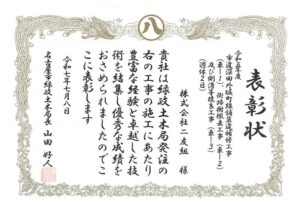 八
表彰状
令和六年度
市道深田外城町線舗装道補修工事
(東-1)、街路樹撤去工事(東-2)
及び側溝等築造工事(東-3)
(週休2日)
株式会社 二友組 様
貴社は緑政土木局発注の
右の工事の施工にあたり
豊富な経験と卓越した技
術を結集し優秀な成績を
おさめられましたのでこ
こに表彰します
令和七年七月八日
名古屋市緑政土木局長 山田 好人